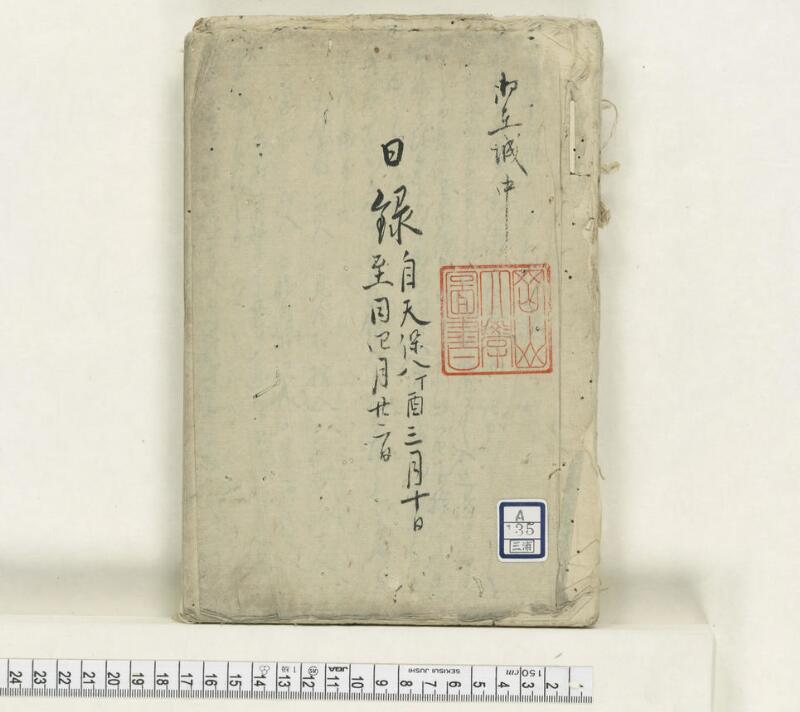 御在城中
日録
自天保八丁酉三月十日
至同四月廿二日
岡山
大學
圖書
A
135
三浦
24 23 22 21 20 19 18 17 16 15 14 13 12 11 10 9 8 7 6 5 4 3 2 1
JGA
SEKISUI JUSHI
150cm